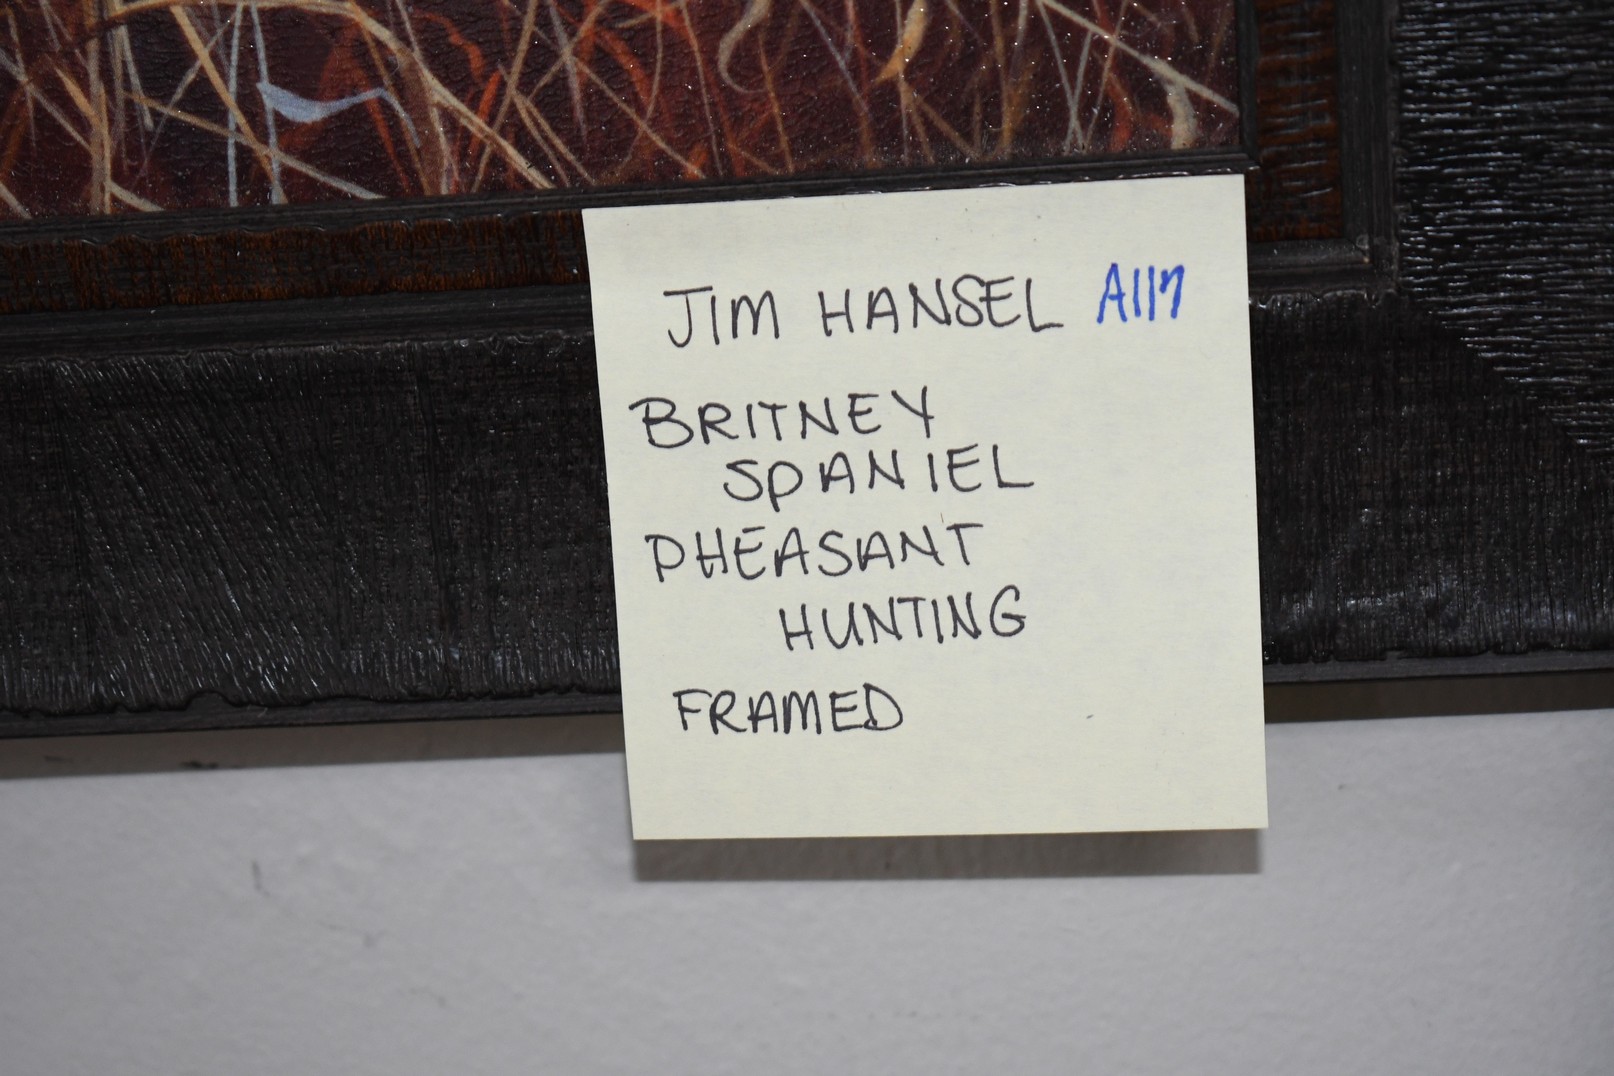 JIM HANSEL A117
BRITNEY
SPANIEL
PHEASANT
HUNTING
FRAMED